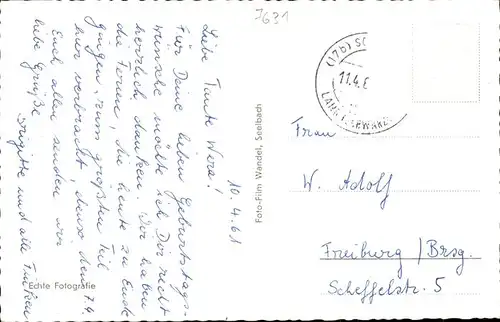 J631
10.4.61
Liebe Tante Wera!
Für Deine lieben Geburtstags-
wünsche möchte ich Dir recht
herzlich danken. Wir haben
die Ferien, die heute zu Ende
gingen, zum größten Teil
hier verbracht,
Euch allen senden wir
liebe Grüße
Brigitte und alle
Echte Fotografie
Foto-Film Wandel, Seelbach
(17b)
11.4.6
LAHR (SCHWARZ
Frau
W. Adolf
Freiburg / Brsg.
Scheffelstr. 5